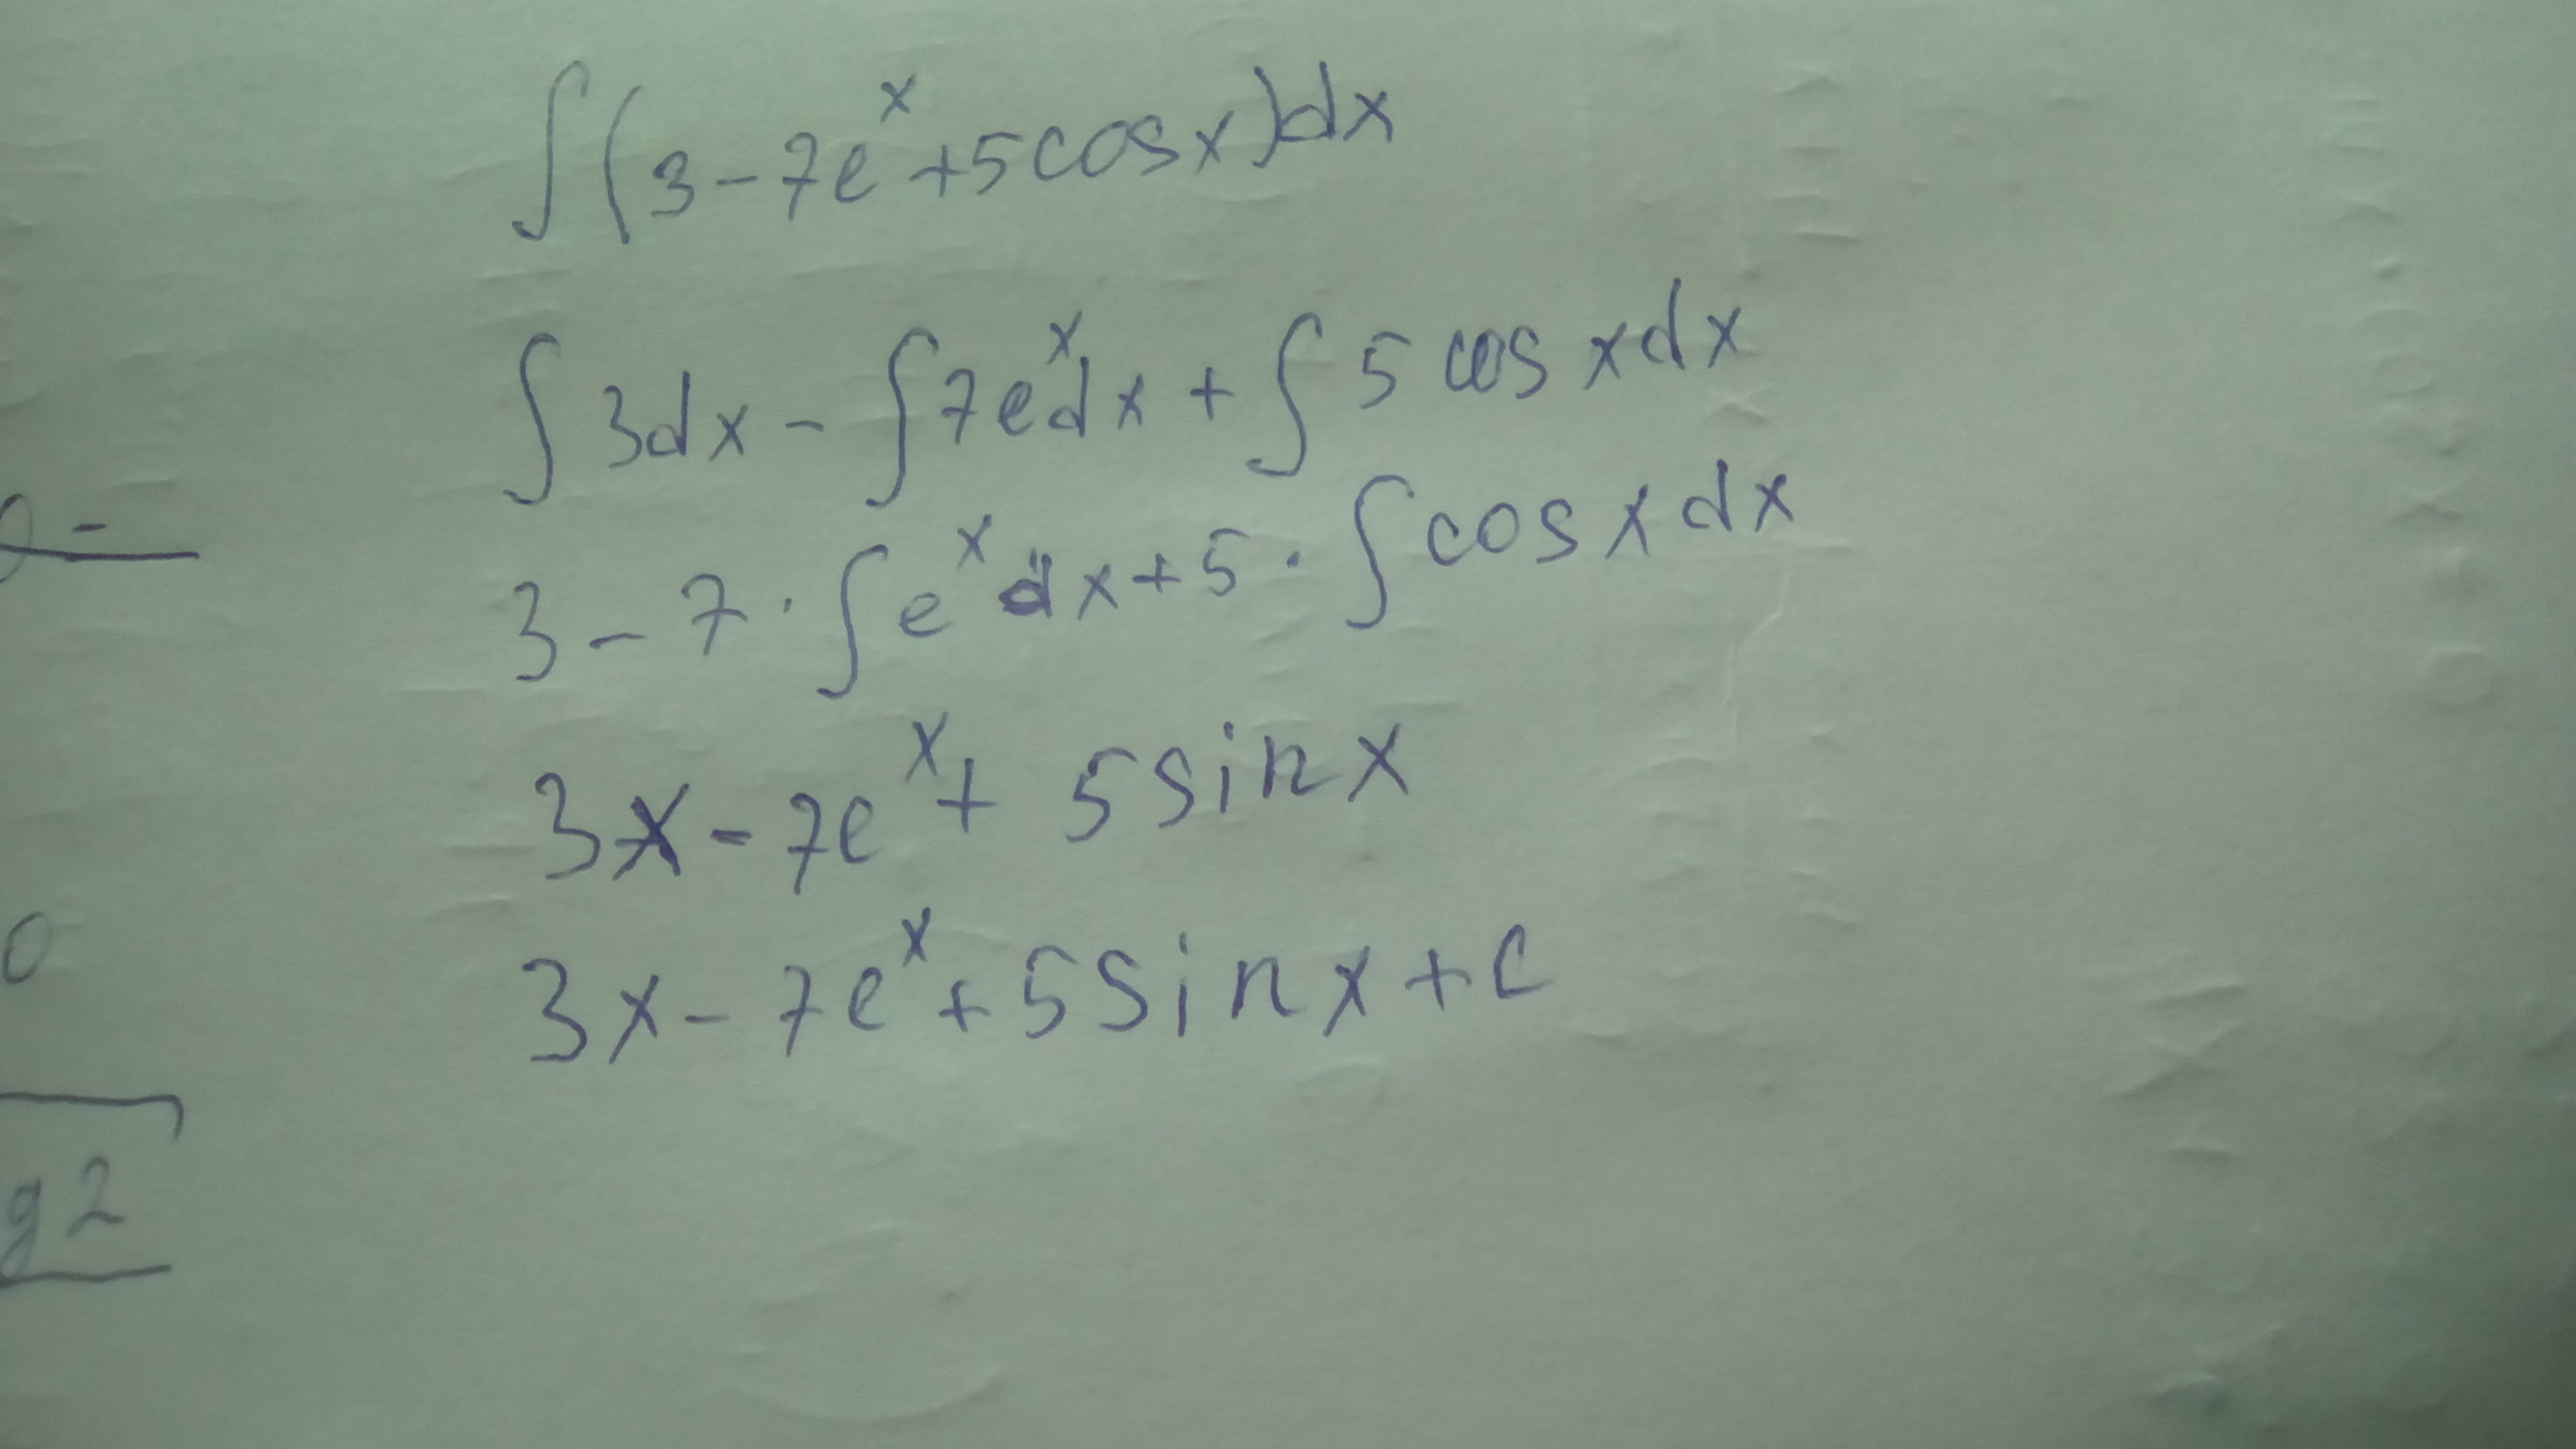 ∫(3-7eˣ+5cosx)dx
∫3dx-∫7eˣdx+∫5cosxdx
3-7·∫eˣdx+5·∫cosxdx
3x-7eˣ+5sinx
3x-7eˣ+5sinx+c
0
g2